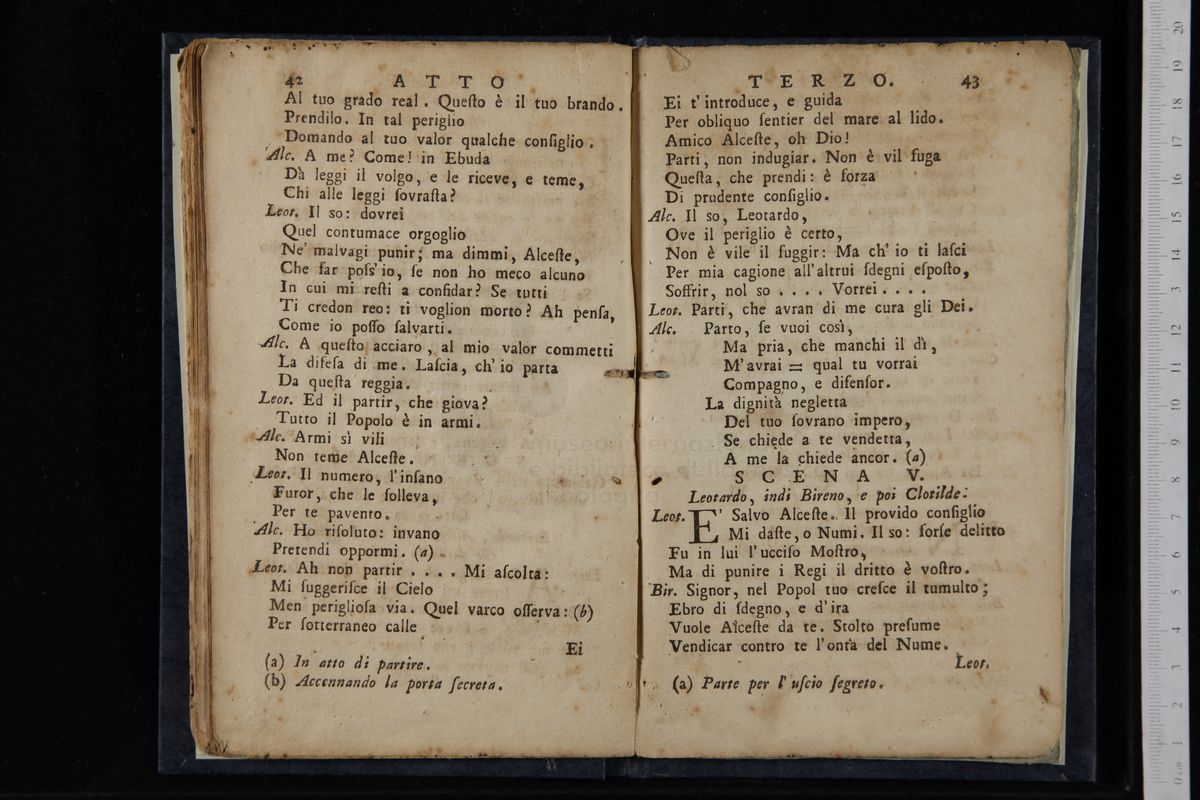 42 ATTO
Al tuo grado real. Queſto è il tuo brando.
Prendilo. In tal periglio
Domando al tuo valor qualche conſiglio.
Alc. A me? Come! in Ebuda
Dà leggi il volgo, e le riceve, e teme,
Chi alle leggi ſovraſta?
Leot. Il so: dovrei
Quel contumace orgoglio
Ne' malvagi punir; ma dimmi, Alceſte,
Che far poſs' io, ſe non ho meco alcuno
In cui mi reſti a confidar? Se tutti
Ti credon reo: ti voglion morto? Ah penſa,
Come io poſſo ſalvarti.
Alc. A queſto acciaro, al mio valor commetti
La difeſa di me. Laſcia, ch' io parta
Da queſta reggia.
Leot. Ed il partir, che giova?
Tutto il Popolo è in armi.
Alc. Armi sì vili
Non teme Alceſte.
Leot. Il numero, l'inſano
Furor, che le ſolleva,
Per te pavento.
Alc. Ho riſoluto: invano
Pretendi oppormi. (a)
Leot. Ah non partir .... Mi aſcolta:
Mi ſuggeriſce il Cielo
Men periglioſa via. Quel varco oſſerva: (b)
Per ſotterraneo calle
Ei
(a) In atto di partire.
(b) Accennando la porta ſecreta.
TERZO. 43
Ei t' introduce, e guida
Per obliquo ſentier del mare al lido.
Amico Alceſte, oh Dio!
Parti, non indugiar. Non è vil fuga
Queſta, che prendi: è forza
Di prudente conſiglio.
Alc. Il so, Leotardo,
Ove il periglio è certo,
Non è vile il fuggir: Ma ch' io ti laſci
Per mia cagione all'altrui ſdegni eſpoſto,
Soffrir, nol so .... Vorrei ....
Leot. Parti, che avran di me cura gli Dei.
Alc. Parto, ſe vuoi così,
Ma pria, che manchi il dì,
M' avrai = qual tu vorrai
Compagno, e difenſor.
La dignità negletta
Del tuo ſovrano impero,
Se chiede a te vendetta,
A me la chiede ancor. (a)
SCENA V.
Leotardo, indi Bireno, e poi Clotilde.
Leot. E' Salvo Alceſte. Il provido conſiglio
Mi daſte, o Numi. Il so: forſe delitto
Fu in lui l'ucciſo Moſtro,
Ma di punire i Regi il dritto è voſtro.
Bir. Signor, nel Popol tuo creſce il tumulto;
Ebro di ſdegno, e d'ira
Vuole Alceſte da te. Stolto preſume
Vendicar contro te l'onta del Nume.
Leot.
(a) Parte per l' uſcio ſegreto.